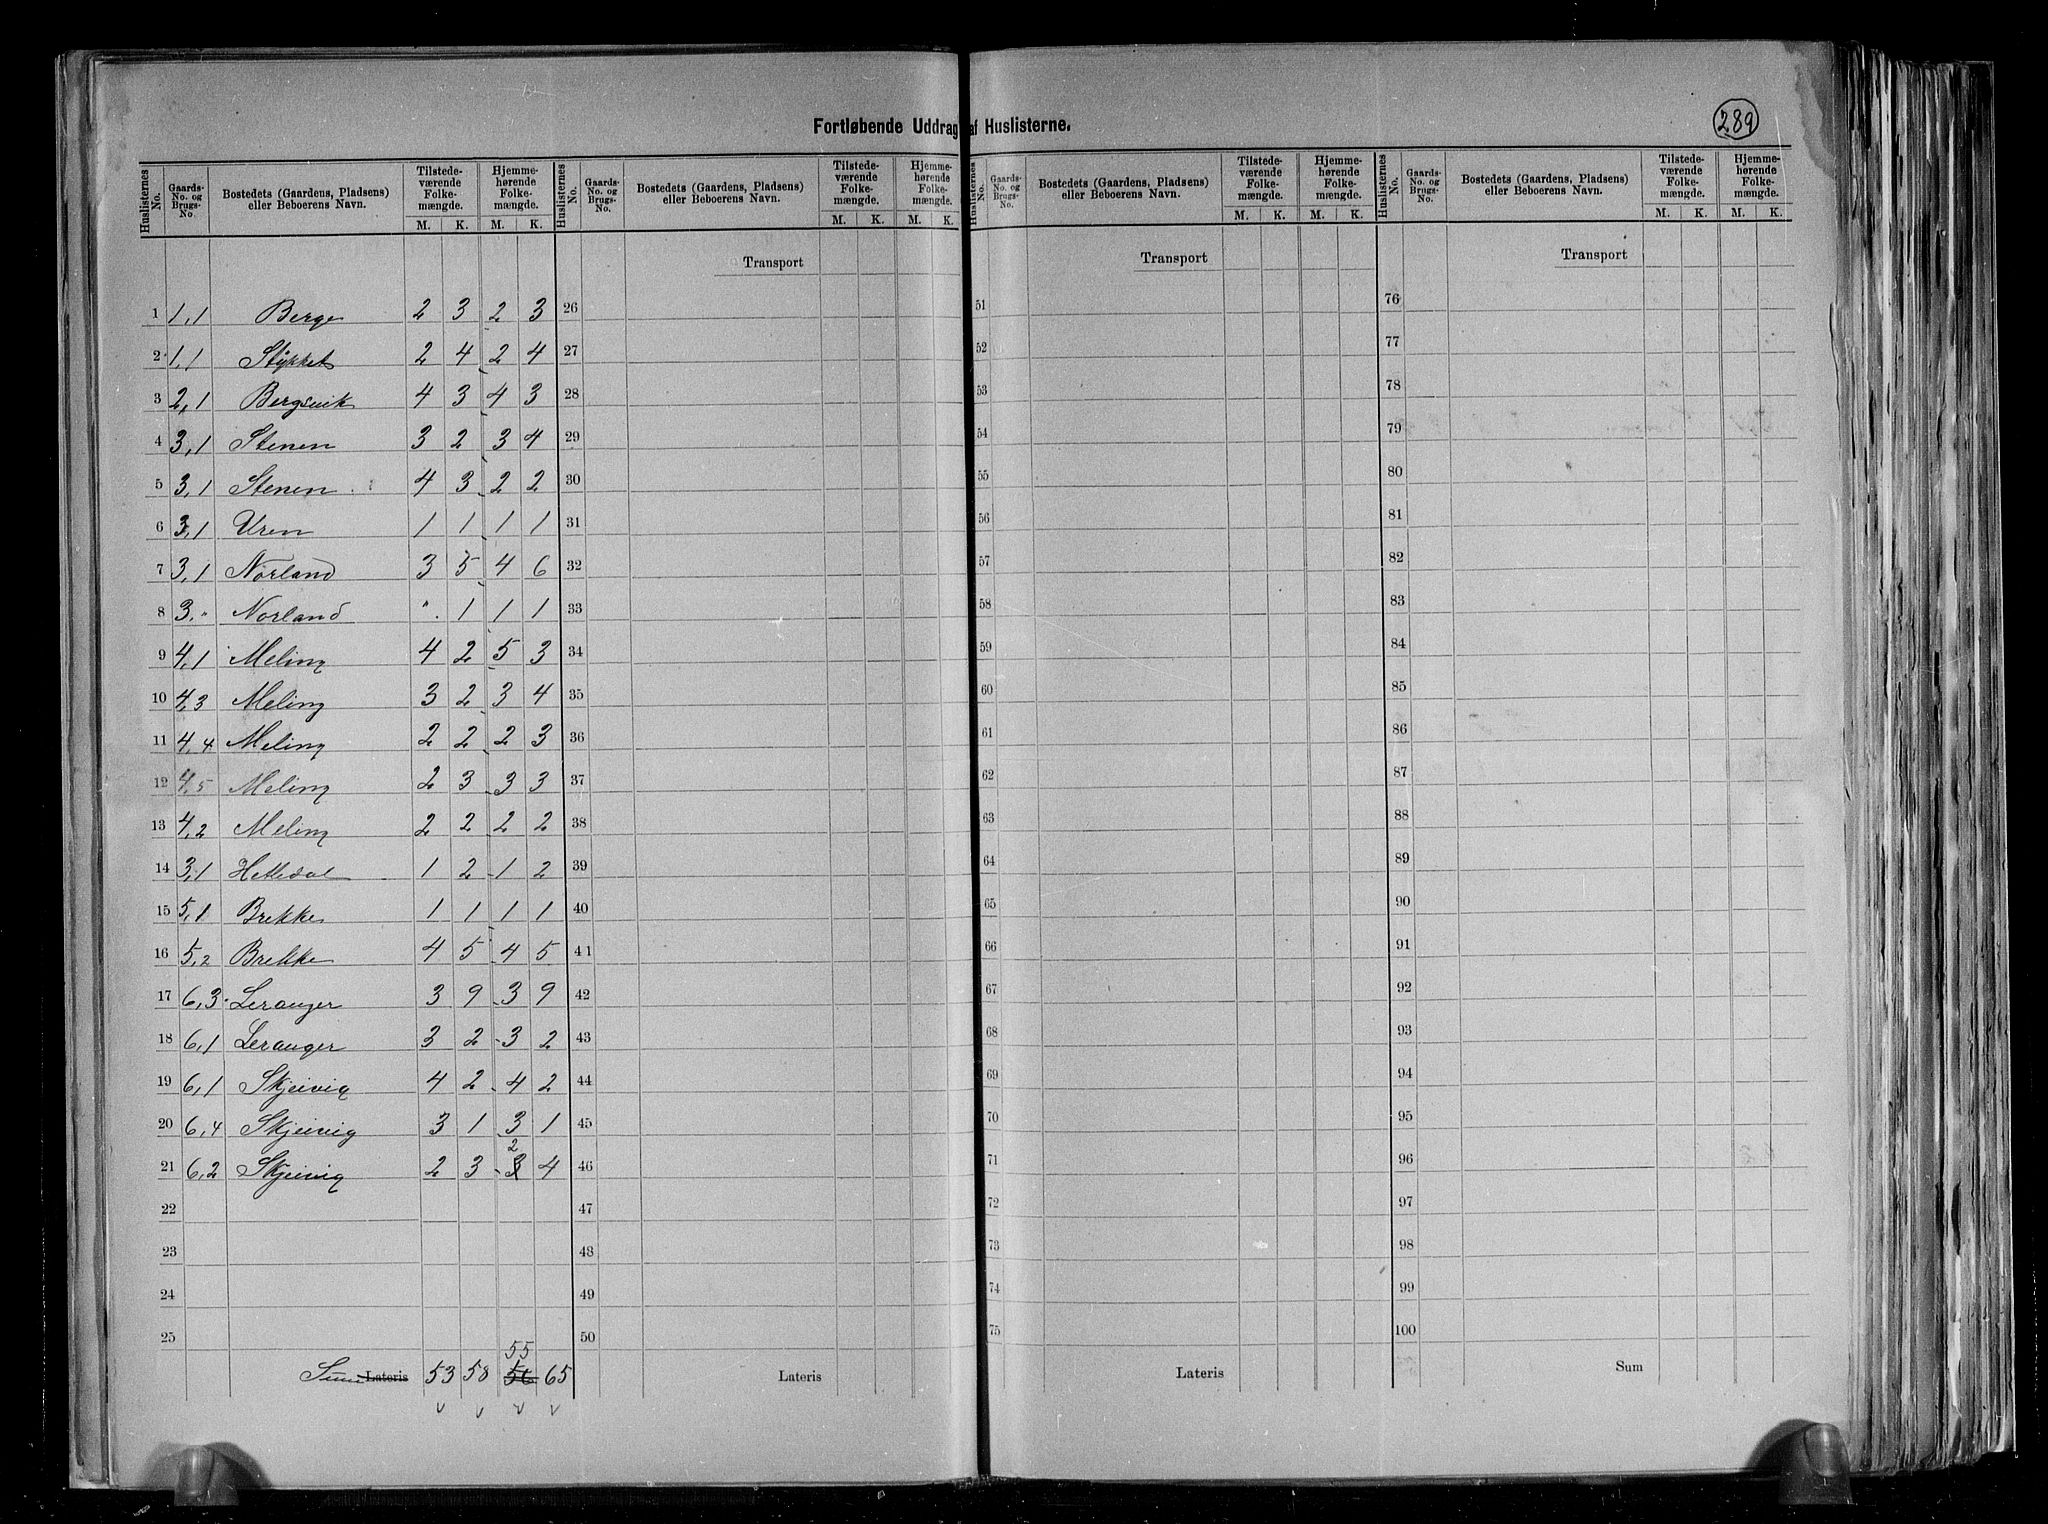 Fortløbende Uddrag af Huslisterne.
289
Huslisternes No. | Gaards-No. og Brugs-No. | Bostedets (Gaardens, Pladsens) eller Beboerens Navn. | Tilstedeværende Folkemængde. M. K. | Hjemmehørende Folkemængde. M. K.
1 1,1 Berge 2 3 2 3
2 1,1 Stykket 2 4 2 4
3 2,1 Bergsvik 4 3 4 3
4 3,1 Stenen 3 2 3 4
5 3,1 Stenen 4 3 2 2
6 3,1 Uren 1 1 1 1
7 3,1 Norland 3 5 4 6
8 3,„ Norland „ 1 1 1
9 4,1 Meling 4 2 5 3
10 4,3 Meling 3 2 3 4
11 4,4 Meling 2 2 2 3
12 4,5 Meling 2 3 3 3
13 4,2 Meling 2 2 2 2
14 3,1 Hetledal 1 2 1 2
15 5,1 Brekke 1 1 1 1
16 5,2 Brekke 4 5 4 5
17 6,3 Leranger 3 9 3 9
18 6,1 Leranger 3 2 3 2
19 6,1 Skjeivig 4 2 4 2
20 6,4 Skjeivig 3 1 3 1
21 6,2 Skjeivig 2 3 3 2 4
22
23
24
25
Sum Lateris 53 58 56 55 65
Huslisternes No. | Gaards-No. og Brugs-No. | Bostedets (Gaardens, Pladsens) eller Beboerens Navn. | Tilstedeværende Folkemængde. M. K. | Hjemmehørende Folkemængde. M. K.
Transport
26
27
28
29
30
31
32
33
34
35
36
37
38
39
40
41
42
43
44
45
46
47
48
49
50
Lateris
Huslisternes No. | Gaards-No. og Brugs-No. | Bostedets (Gaardens, Pladsens) eller Beboerens Navn. | Tilstedeværende Folkemængde. M. K. | Hjemmehørende Folkemængde. M. K.
Transport
51
52
53
54
55
56
57
58
59
60
61
62
63
64
65
66
67
68
69
70
71
72
73
74
75
Lateris
Huslisternes No. | Gaards-No. og Brugs-No. | Bostedets (Gaardens, Pladsens) eller Beboerens Navn. | Tilstedeværende Folkemængde. M. K. | Hjemmehørende Folkemængde. M. K.
Transport
76
77
78
79
80
81
82
83
84
85
86
87
88
89
90
91
92
93
94
95
96
97
98
99
100
Sum